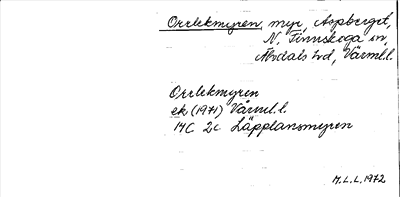 Orrlekmyren, myr, Aspberget,
N. Finnskoga sn,
Älvdals hd, Värml.l.
Orrlekmyren
ek (1971) Värml.l.
14C 2c Läpplansmyren
M.L.L. 1972